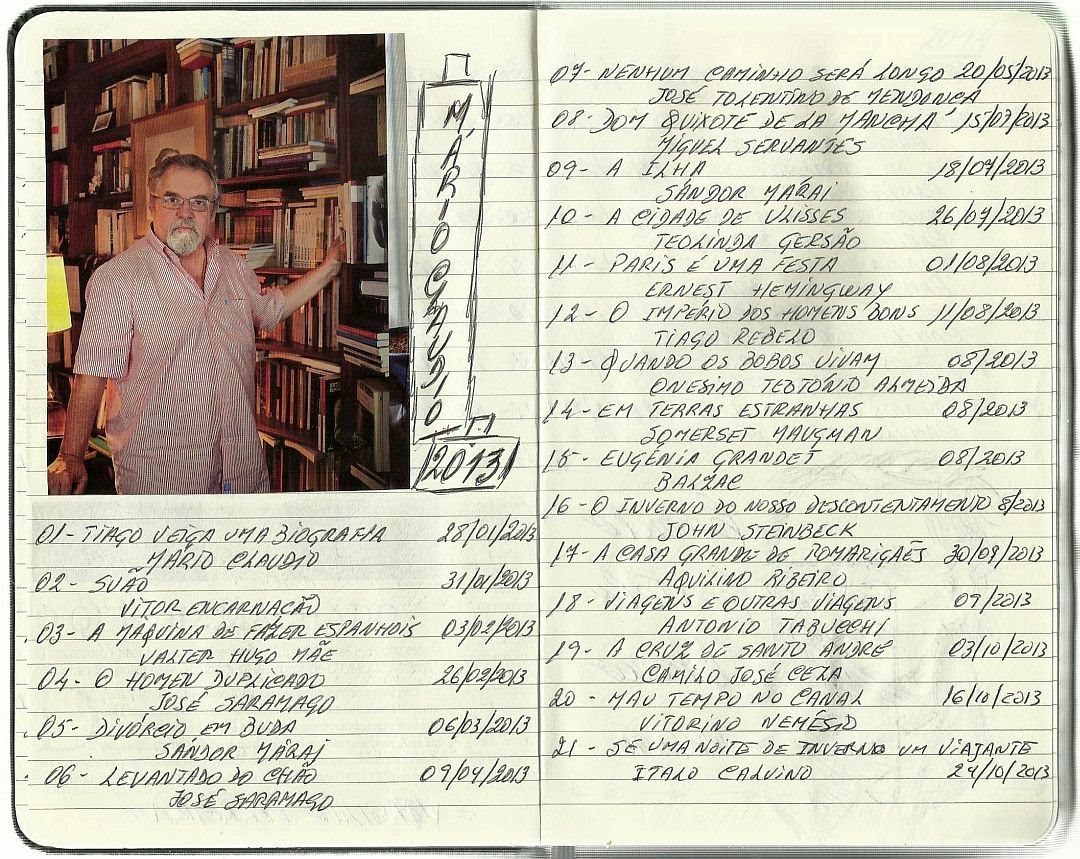 MÁRIO CLÁUDIO
2013
01- TIAGO VEIGA UMA BIOGRAFIA 28/01/2013
MÁRIO CLAUDIO
02- SUÃO 31/01/2013
VITOR ENCARNAÇÃO
03- A MÁQUINA DE FAZER ESPANHOIS 03/02/2013
VALTER HUGO MÃE
04- O HOMEN DUPLICADO 26/02/2013
JOSÉ SARAMAGO
05- DIVÓRCIO EM BUDA 06/03/2013
SÁNDOR MÁRAI
06- LEVANTADO DO CHÃO 09/04/2013
JOSÉ SARAMAGO
07- NENHUM CAMINHO SERÁ LONGO 20/05/2013
JOSÉ TOLENTINO DE MENDONÇA
08- DOM QUIXOTE DE LA MANCHA 15/07/2013
MIGUEL SERVANTES
09- A ILHA 18/07/2013
SÁNDOR MÁRAI
10- A CIDADE DE ULISSES 26/07/2013
TEOLINDA GERSÃO
11- PARIS É UMA FESTA 01/08/2013
ERNEST HEMINGWAY
12- O IMPÉRIO DOS HOMENS BONS 11/08/2013
TIAGO REBELO
13- QUANDO OS BOBOS UIVAM 08/2013
ONESIMO TEOTÓNIO ALMEIDA
14- EM TERRAS ESTRANHAS 08/2013
SOMERSET MAUGMAN
15- EUGÉNIA GRANDET 08/2013
BALZAC
16- O INVERNO DO NOSSO DESCONTENTAMENTO 8/2013
JOHN STEINBECK
17- A CASA GRANDE DE ROMARIGÃES 30/09/2013
AQUILINO RIBEIRO
18- VIAGENS E OUTRAS VIAGENS 09/2013
ANTONIO TABUCCHI
19- A CRUZ DE SANTO ANDRÉ 03/10/2013
CAMILO JOSÉ CELA
20- MAU TEMPO NO CANAL 16/10/2013
VITORINO NEMÉSIO
21- SE UMA NOITE DE INVERNO UM VIAJANTE
ITALO CALVINO 24/10/2013